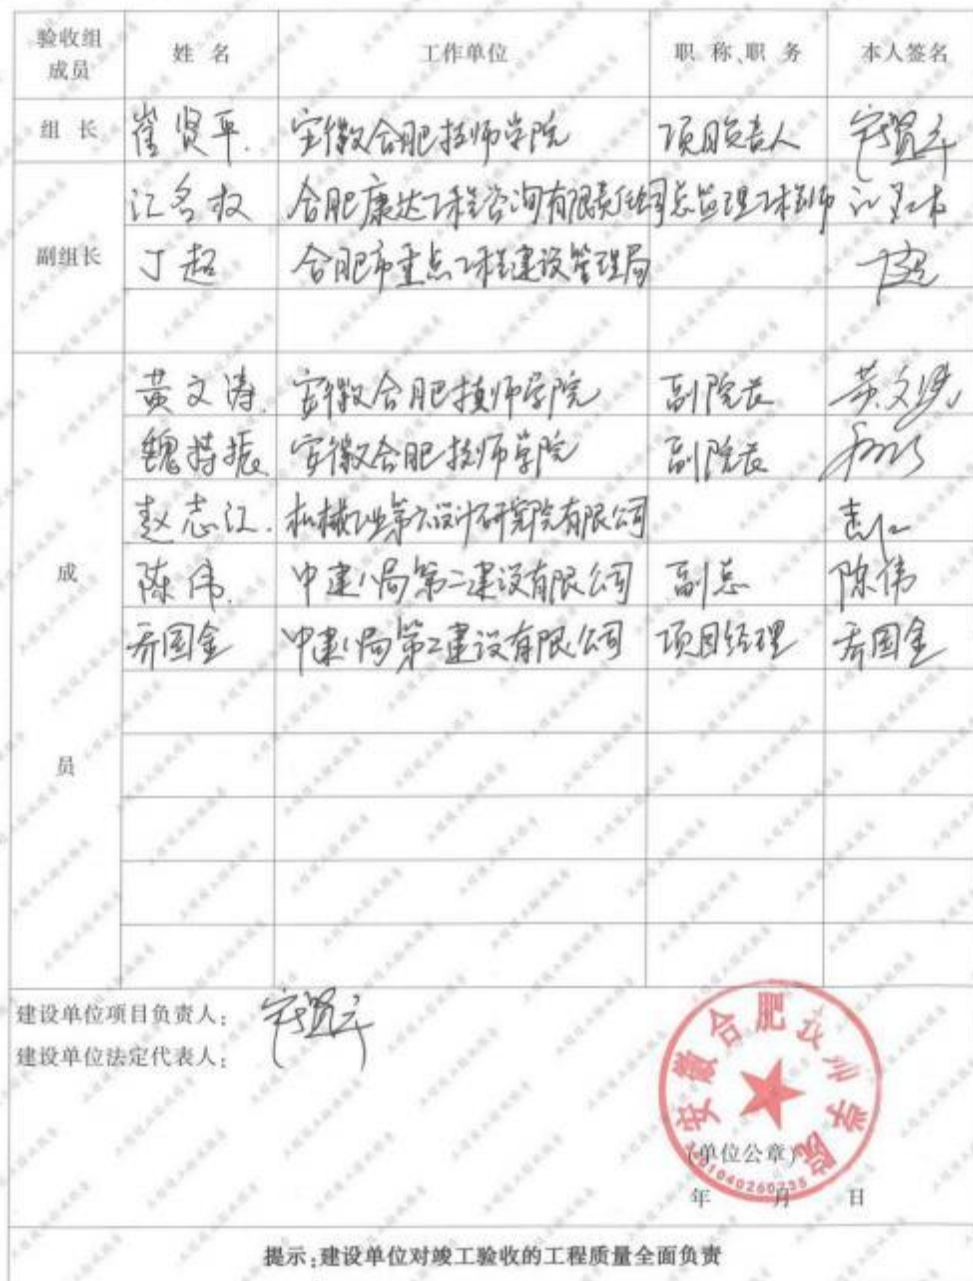 验收组成员 姓 名 工作单位 职 称、职 务 本人签名
组 长 崔贤平 安徽合肥技师学院 项目负责人 崔贤平
副组长 江名权 合肥康达工程咨询有限责任公司 总监理工程师
丁超 合肥市重点工程建设管理局 丁超
成员 黄文涛 安徽合肥技师学院 副院长 黄文涛
魏持振 安徽合肥技师学院 副院长
赵志江 机械工业第六设计研究院有限公司
陈伟 中建八局第二建设有限公司 副总 陈伟
乔国金 中建八局第二建设有限公司 项目经理 乔国金
建设单位项目负责人: 崔贤平
建设单位法定代表人:
安徽合肥技师学院
(单位公章)
年 月 日
提示:建设单位对竣工验收的工程质量全面负责